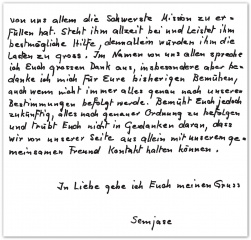 von uns allem die Schwerste Mission zu er-
füllen hat. Steht ihm allzeit bei und leistet ihm
bestmögliche Hilfe, denn allein würden ihm die
Lasten zu gross. Im Namen von uns allen spreche
ich Euch grossen Dank aus, insbesondere aber be-
danke ich mich für Eure bisherigen Bemühen,
auch wenn nicht immer alles genau nach unseren
Bestimmungen befolgt werde. Bemüht Euch jedoch
zukünftig, alles nach genauer Ordnung zu befolgen
und trübt Euch nicht in Gedanken daran, dass
wir von unserer Seite aus allein mit unserem ge-
meinsamen Freund Kontakt halten können.
In Liebe gebe ich Euch meinen Gruss
Semjase